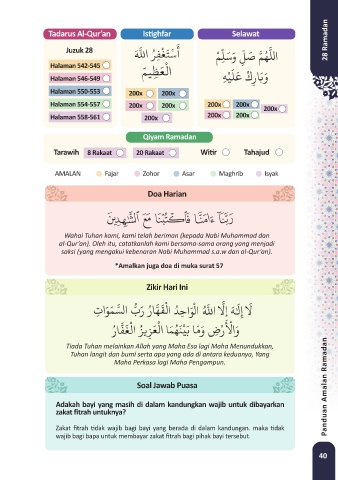 28 Ramadan
Tadarus Al-Qur'an
Istighfar
Selawat
Juzuk 28
Halaman 542-545
Halaman 546-549
Halaman 550-553
Halaman 554-557
Halaman 558-561
أَسْتَغْفِرُ اللَّهَ
الْعَظِيمَ
200x 200x
200x 200x
200x
اللَّهُمَّ صَلِّ وَسَلِّمْ
وَبَارِكْ عَلَيْهِ
200x 200x
200x
200x 200x
Qiyam Ramadan
Tarawih 8 Rakaat 20 Rakaat Witir Tahajud
AMALAN Fajar Zohor Asar Maghrib Isyak
Doa Harian
رَبَّنَآ ءَامَنَّا فَٱكْتُبْنَا مَعَ ٱلشَّـٰهِدِينَ
Wahai Tuhan kami, kami telah beriman (kepada Nabi Muhammad dan
al-Qur'an). Oleh itu, catatkanlah kami bersama-sama orang yang menjadi
saksi (yang mengakui kebenaran Nabi Muhammad s.a.w dan al-Qur'an).
*Amalkan juga doa di muka surat 57
Zikir Hari Ini
لَا إِلَـٰهَ إِلَّا اللهُ الْوَاحِدُ الْقَهَّارُ رَبُّ السَّمَوَاتِ
وَالْأَرْضِ وَمَا بَيْنَهُمَا الْعَزِيزُ الْغَفَّارُ
Tiada Tuhan melainkan Allah yang Maha Esa lagi Maha Menundukkan,
Tuhan langit dan bumi serta apa yang ada di antara keduanya, Yang
Maha Perkasa lagi Maha Pengampun.
Soal Jawab Puasa
Adakah bayi yang masih di dalam kandungkan wajib untuk dibayarkan
zakat fitrah untuknya?
Zakat fitrah tidak wajib bagi bayi yang berada di dalam kandungan. maka tidak
wajib bagi bapa untuk membayar zakat fitrah bagi pihak bayi tersebut.
Panduan Amalan Ramadan
40